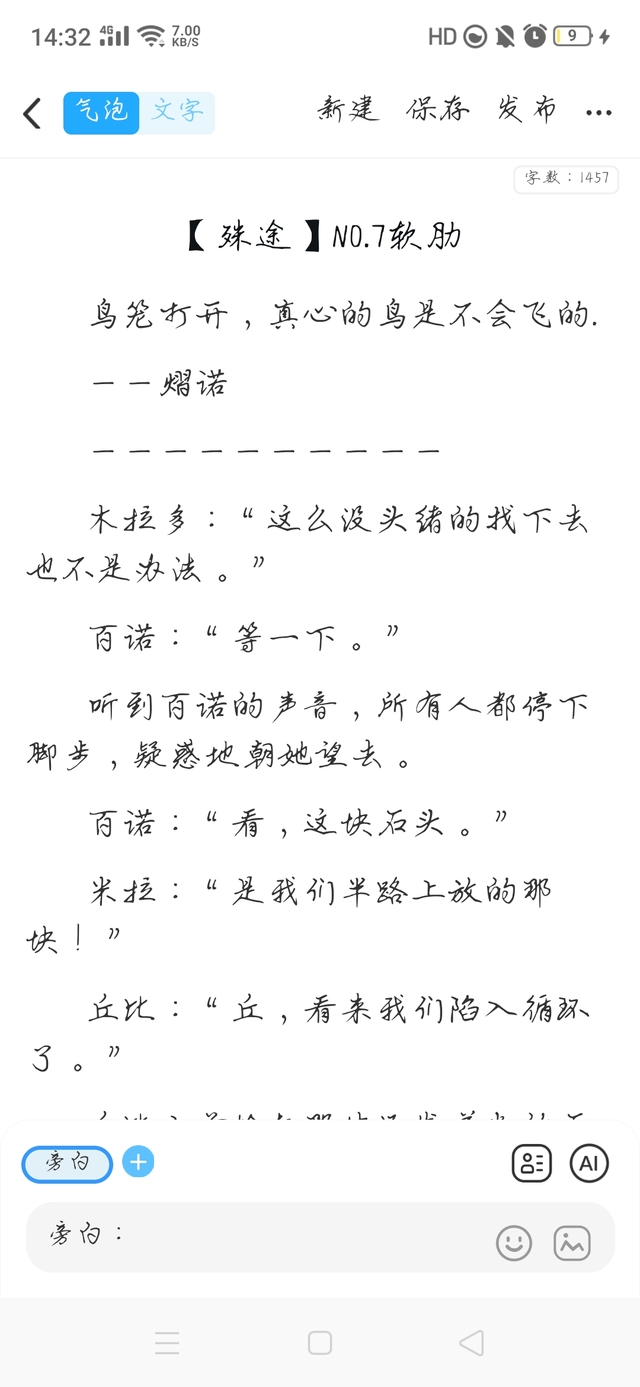 14:32 4G 7.00 KB/S HD 9
气泡 文字 新建 保存 发布 ...
字数：1457
【殊途】NO.7软肋
鸟笼打开，真心的鸟是不会飞的.
——熠诺
——————————
木拉多：“这么没头绪的找下去
也不是办法。”
百诺：“等一下。”
听到百诺的声音，所有人都停下
脚步，疑惑地朝她望去。
百诺：“看，这块石头。”
米拉：“是我们半路上放的那
块！”
丘比：“丘，看来我们陷入循环
了。”
旁白 + AI
旁白：